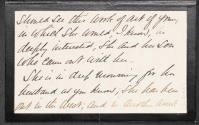 should see this work of art of yours,
in which she would, I know, be
deeply interested, she and her son
who came out with her.
She is in deep mourning for her
husband as you know, she has been
out in the West, and in